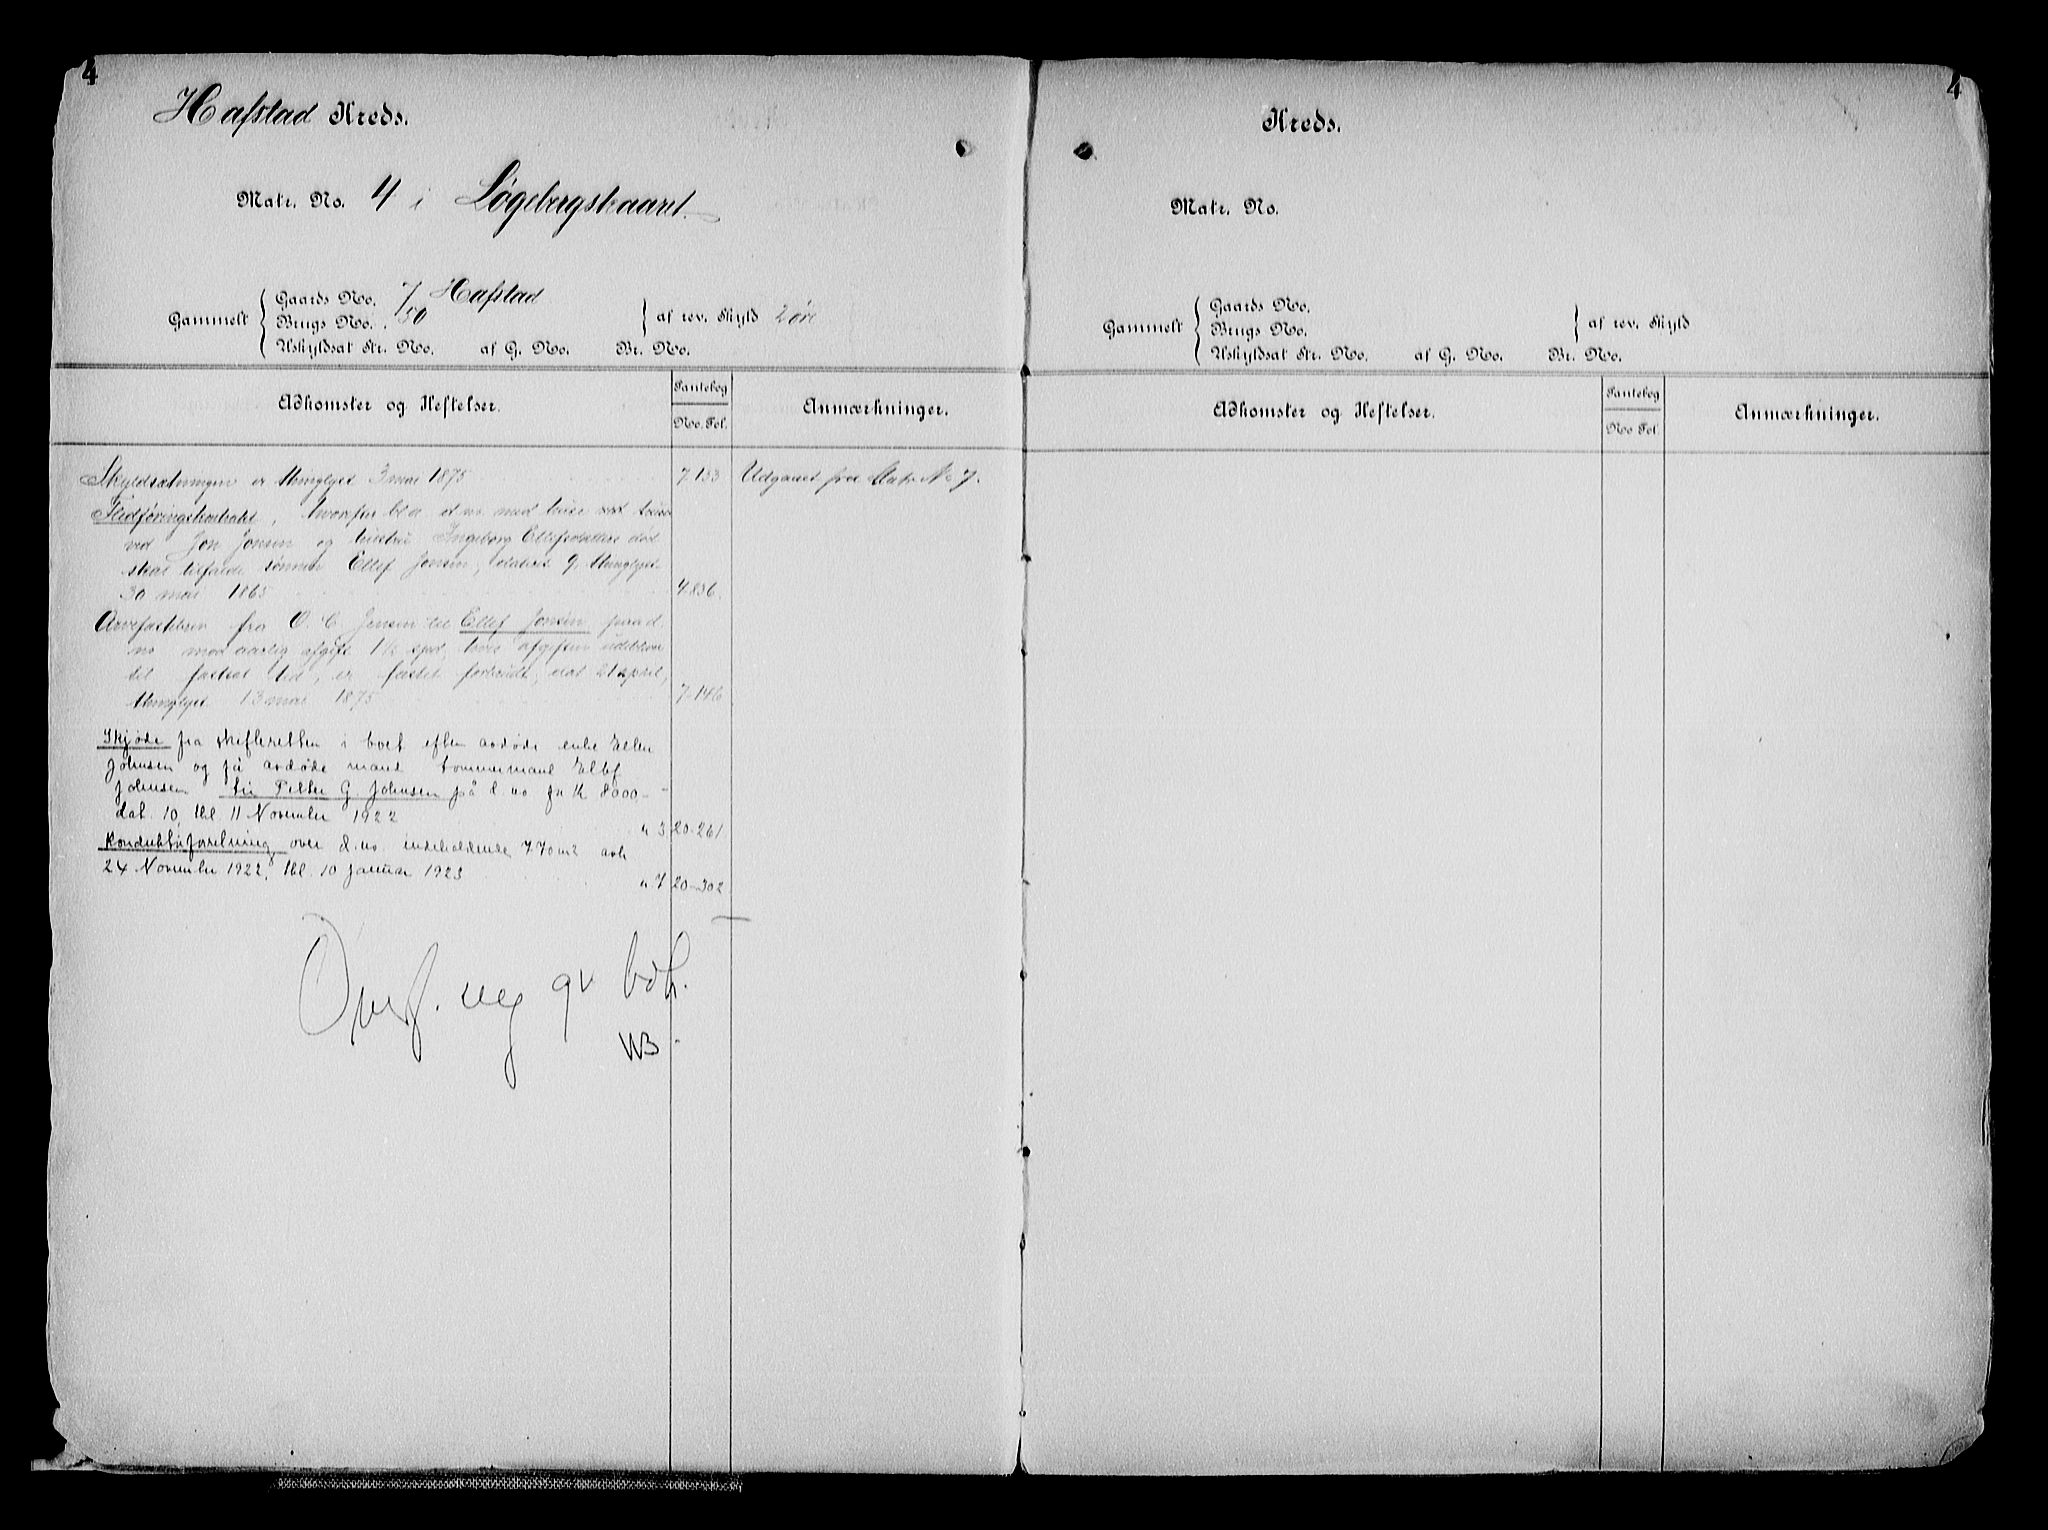 4
Hafstad Kreds.
Matr. No. 4 i Løgebergskaaret.
Gammelt
Gaards No. 7 Hafstad
Brugs No. 50
Uskyldsat Str. No. af G. No. Br. No.
af rev. Skyld 2 øre
Adkomster og Heftelser.
Pantebog
No. Fol.
Anmærkninger.
Skyldsætningen er thinglyst 3 mai 1875 7 153 Udgaaet fra Matr No 7.
Flidføringskontrakt, hvorfor bl. a. d. no med huse
ved Jon Jonsen og hustru Ingeborg Ellefsdatters død
skal tilfalde sønnen Ellef Jonsen, dateret 9, thinglyst
30 mai 1865 4 836.
Arvefæstebrev fra O. C. Jensen til Ellef Jonsen paa d.
no mod aarlig afgift 1½ spd, hvis afgiften udebliver
til fastsat tid, er fæstet forbrudt, dat 21 april,
thinglyst 13 mai 1875 7-146
Skjøde fra skifteretten i boet efter avdøde enke Ellen
Johnsen og før avdøde mand tømmermand Ellef
Johnsen til Petter G. Johnsen på d. no for kr 8000,-
dat. 10, tbl. 11 November 1922 n 3 20-261.
Konduktørforretning over d. no. indeholdende 770 m2 avh
24 November 1922, tbl. 10 januar 1923 n. 7 20-302
Overf. reg
WB
4
Kreds.
Matr. No.
Gammelt
Gaards No.
Brugs No.
Uskyldsat Str. No. af G. No. Br. No.
af rev. Skyld
Adkomster og Heftelser.
Pantebog
No Fol.
Anmærkninger.